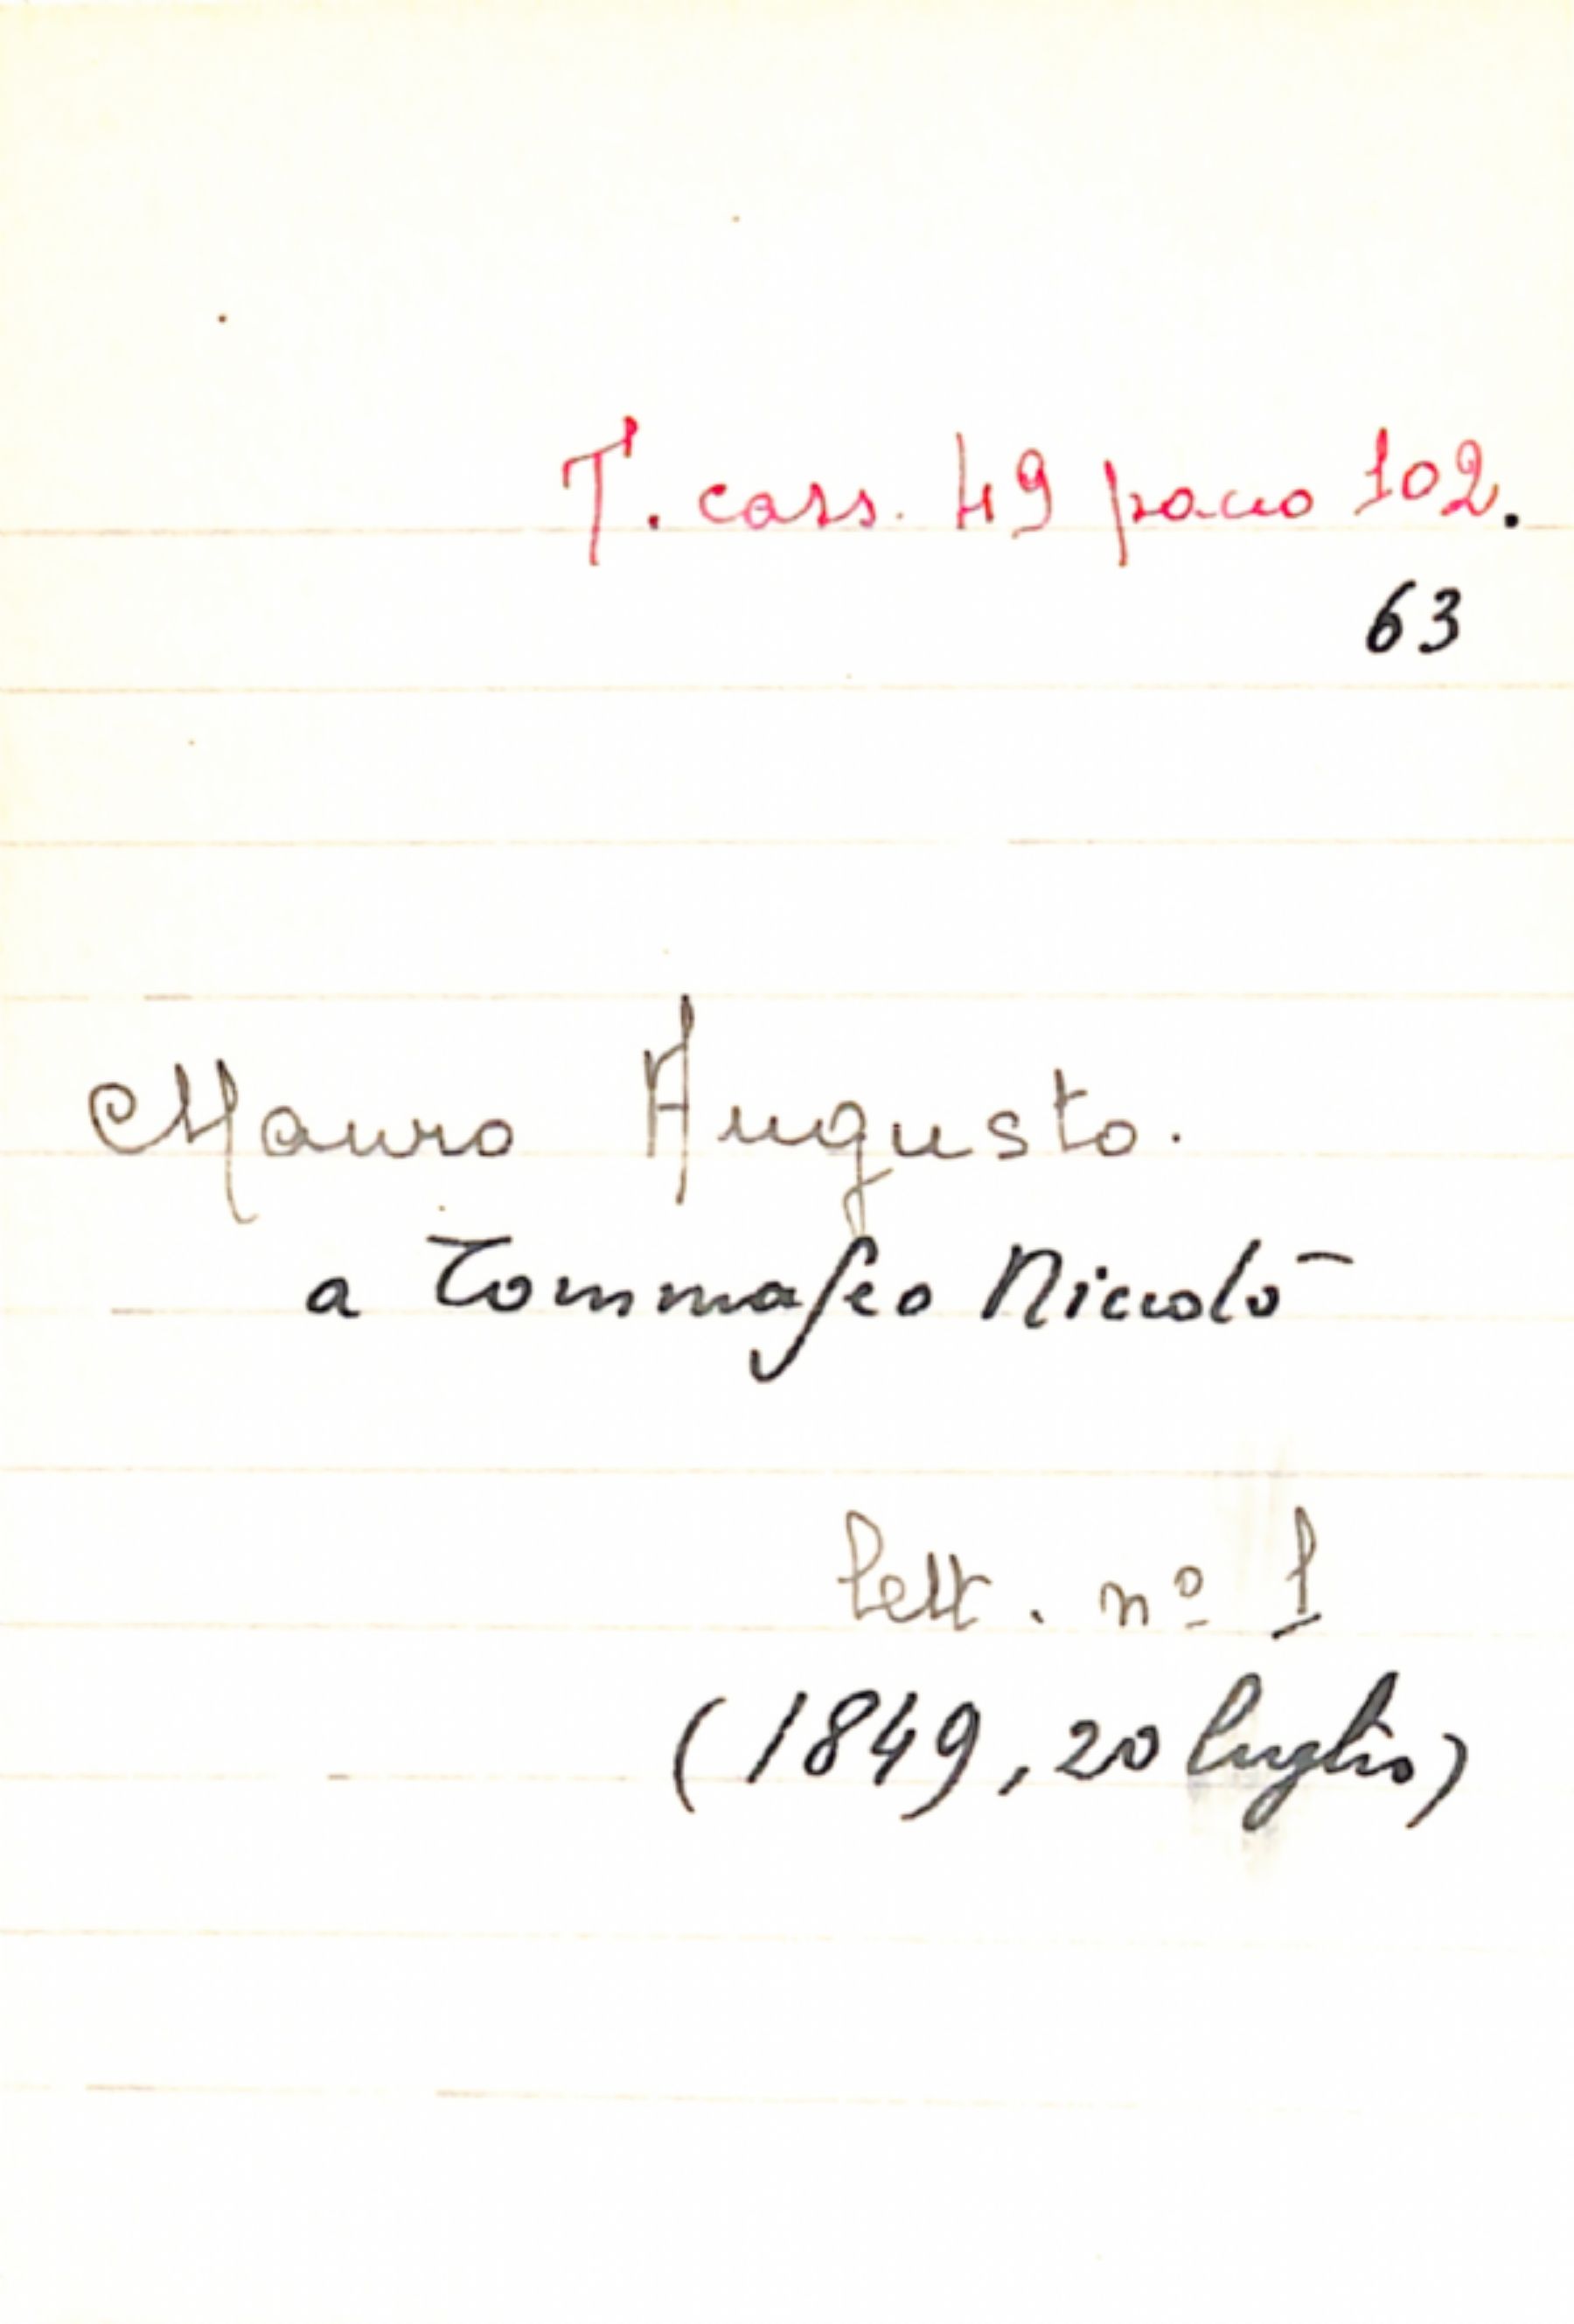 T. cass. 49 pacco 102.
63
Mauro Augusto.
a Tommaseo Niccolò
lett. nº 1
(1849, 20 luglio)